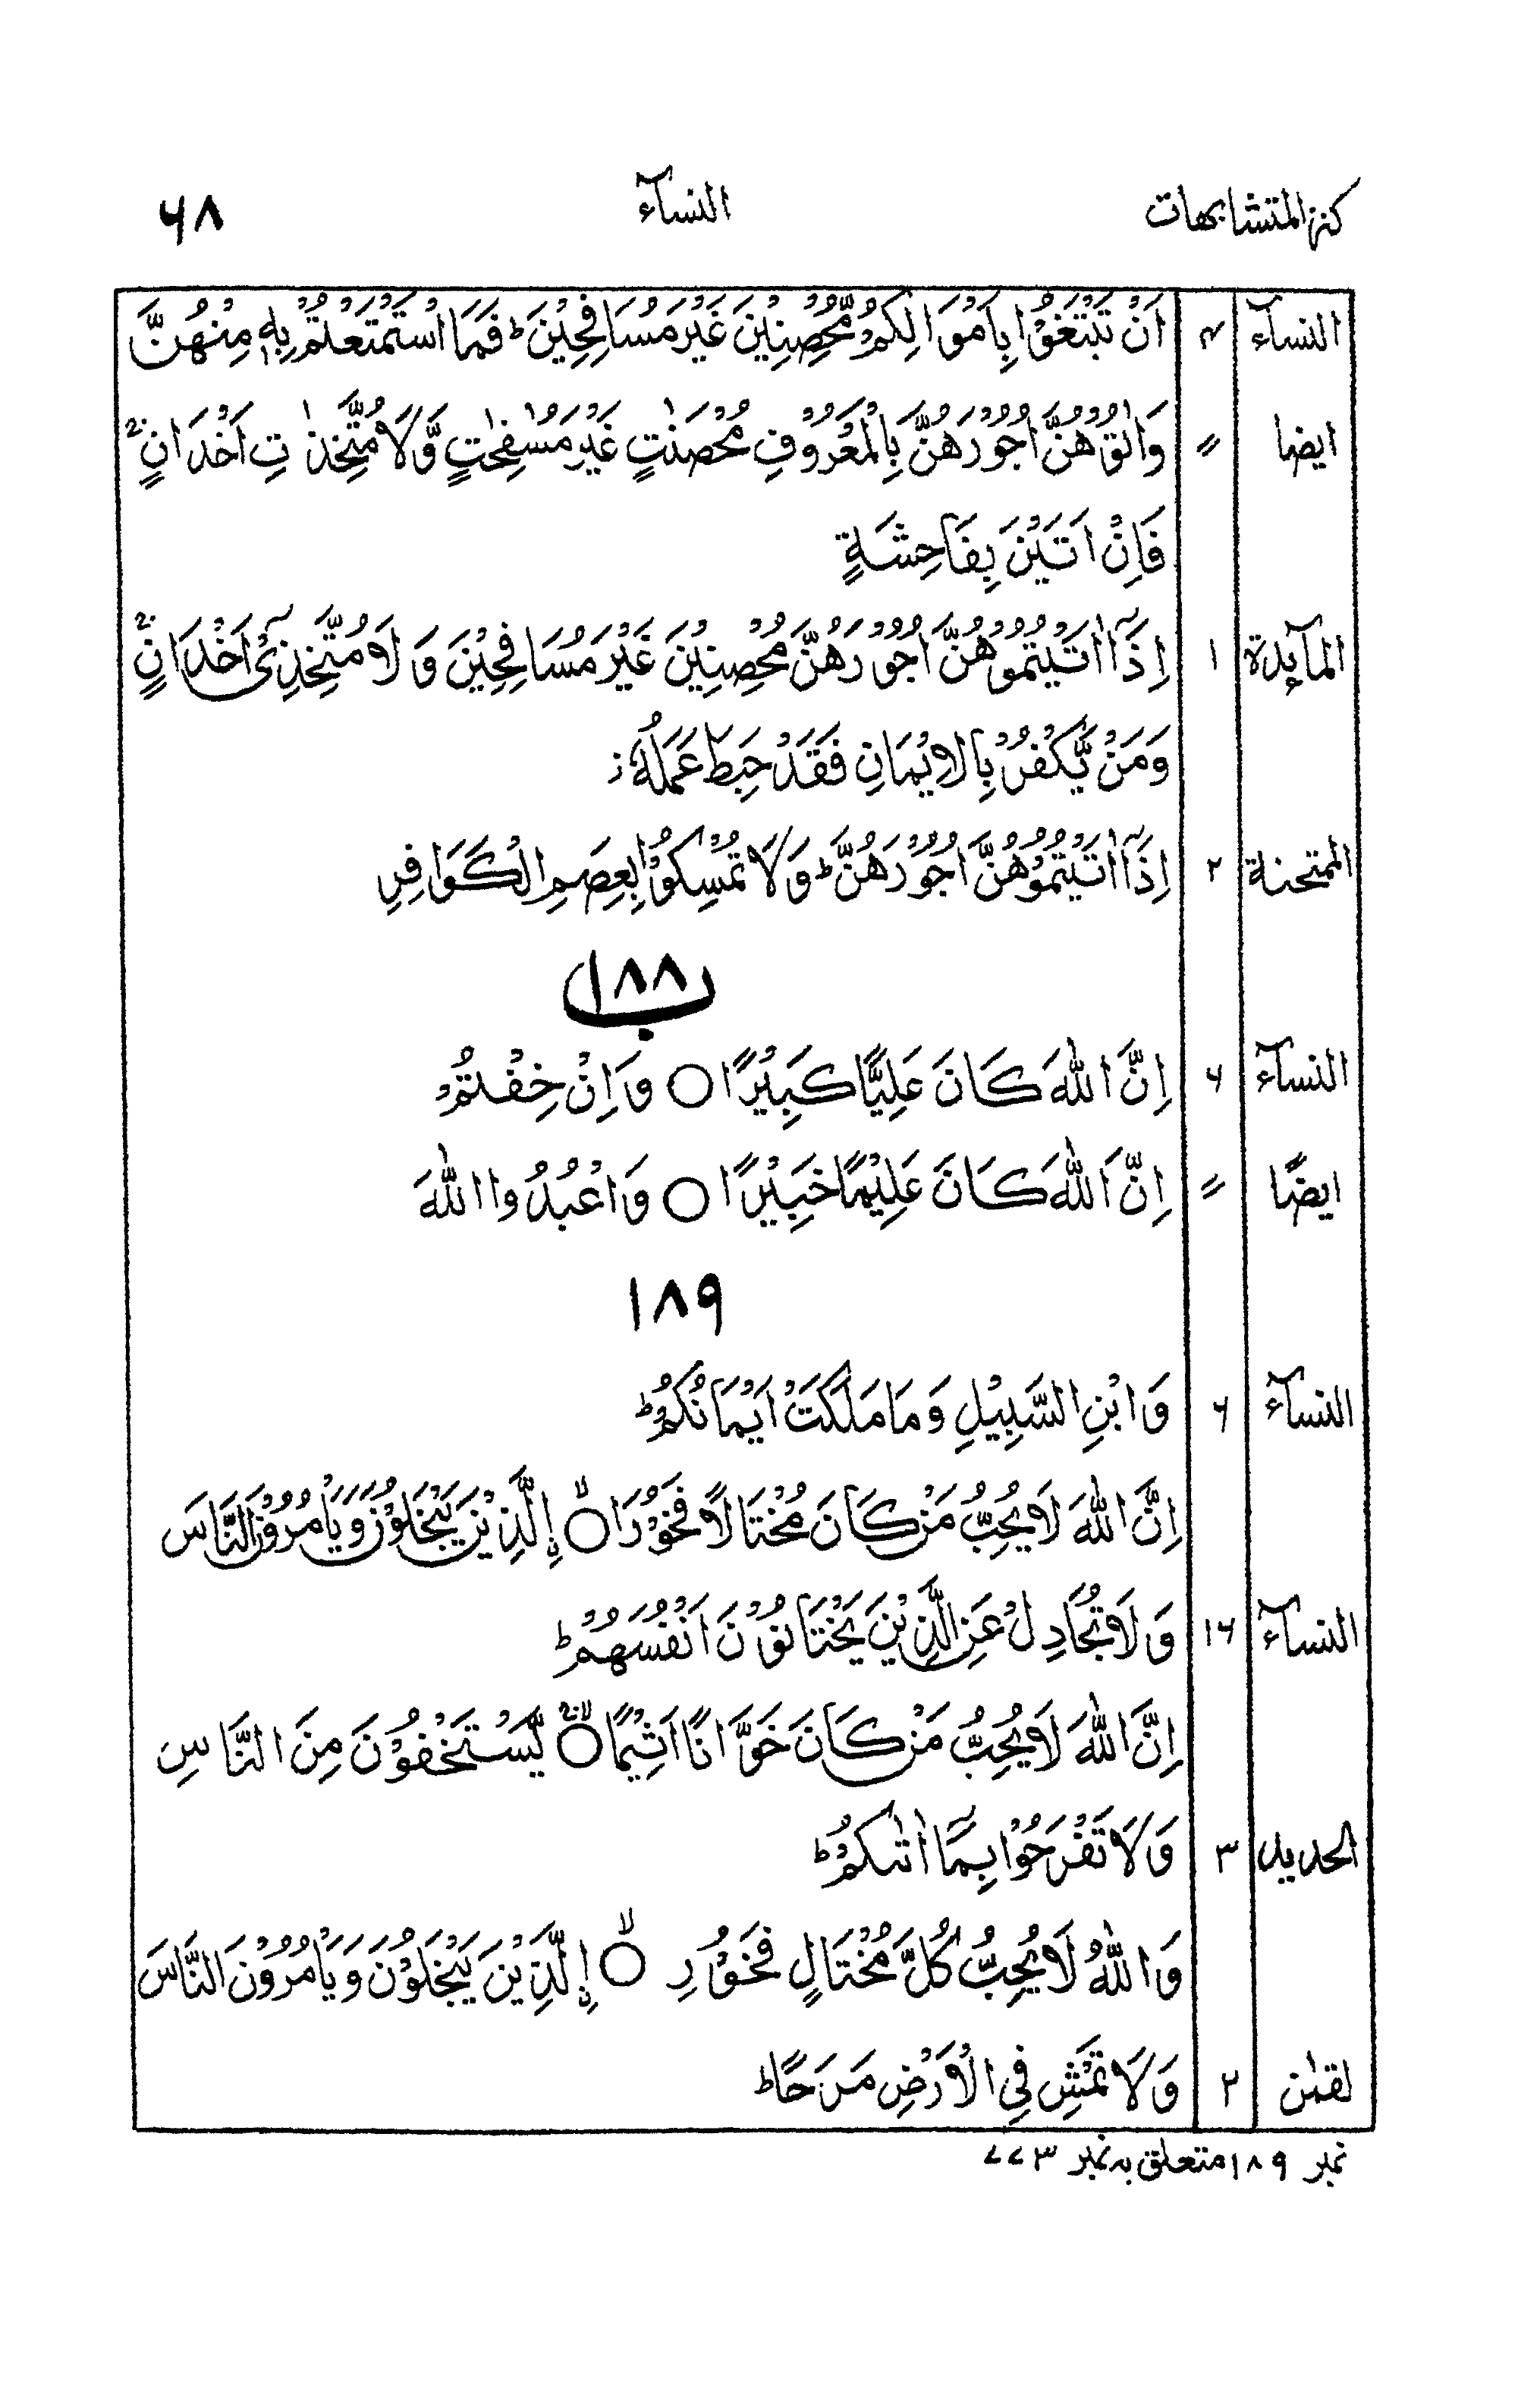 كنز المتشابهات النسآء ۶۸
النسآء ۴ اَنْ تَبْتَغُوْا بِاَمْوَالِكُمْ مُّحْصِنِيْنَ غَيْرَ مُسَافِحِيْنَ ؕ فَمَا اسْتَمْتَعْتُمْ بِهٖ مِنْهُنَّ
ايضا 〃 وَاٰتُوْهُنَّ اُجُوْرَهُنَّ بِالْمَعْرُوْفِ مُحْصَنٰتٍ غَيْرَ مُسٰفِحٰتٍ وَّلَا مُتَّخِذٰتِ اَخْدَانٍ ۚ
فَاِنْ اَتَيْنَ بِفَاحِشَةٍ
المآئدة ۱ اِذَاۤ اٰتَيْتُمُوْهُنَّ اُجُوْرَهُنَّ مُحْصِنِيْنَ غَيْرَ مُسَافِحِيْنَ وَلَا مُتَّخِذِىْۤ اَخْدَانٍ ۚ
وَمَنْ يَّكْفُرْ بِالْاِيْمَانِ فَقَدْ حَبِطَ عَمَلُهٗ ز
الممتحنة ۲ اِذَاۤ اٰتَيْتُمُوْهُنَّ اُجُوْرَهُنَّ ؕ وَلَا تُمْسِكُوْا بِعِصَمِ الْكَوَافِرِ
ب ۱۸۸
النسآء ۶ اِنَّ اللّٰهَ كَانَ عَلِيًّا كَبِيْرًا ○ وَاِنْ خِفْتُمْ
ايضًا 〃 اِنَّ اللّٰهَ كَانَ عَلِيْمًا خَبِيْرًا ○ وَاعْبُدُوا اللّٰهَ
۱۸۹
النسآء ۶ وَابْنِ السَّبِيْلِ وَمَا مَلَكَتْ اَيْمَانُكُمْ ؕ
اِنَّ اللّٰهَ لَا يُحِبُّ مَنْ كَانَ مُخْتَالًا فَخُوْرَا ○ۙ اِلَّذِيْنَ يَبْخَلُوْنَ وَيَاْمُرُوْنَ النَّاسَ
النسآء ۱۶ وَلَا تُجَادِلْ عَنِ الَّذِيْنَ يَخْتَانُوْنَ اَنْفُسَهُمْ ؕ
اِنَّ اللّٰهَ لَا يُحِبُّ مَنْ كَانَ خَوَّانًا اَثِيْمًا ○ۙۚ يَّسْتَخْفُوْنَ مِنَ النَّاسِ
الحديد ۳ وَلَا تَفْرَحُوْا بِمَاۤ اٰتٰىكُمْ ؕ
وَاللّٰهُ لَا يُحِبُّ كُلَّ مُخْتَالٍ فَخُوْرِ ○ۙ اِلَّذِيْنَ يَبْخَلُوْنَ وَيَاْمُرُوْنَ النَّاسَ
لقمٰن ۲ وَلَا تَمْشِ فِى الْاَرْضِ مَرَحًا ؕ
نمبر ۱۸۹ متعلق به نمبر ۷۷۳